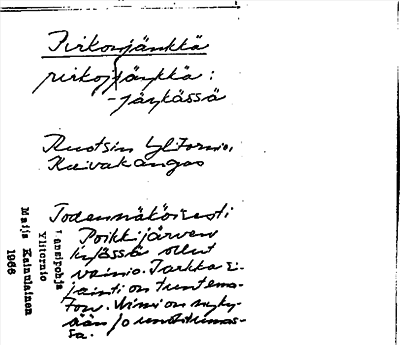 Pirkonjänkkä
pirkoj|äŋkkä :
- jäŋkässä
Ruotsin Ylitornio,
Kuivakangas
Todennäköisesti
Poikkijärven
kylässä ollut
vainio. Tarkka si-
jainti on tuntema-
ton. Nimi on nyky-
ään jo unohtumas-
sa.
Länsipohja
Ylitornio
Maija Kainulainen
1966